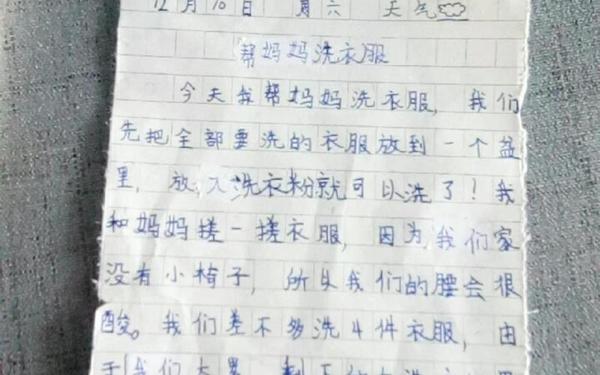 12月10日 周六 天气
帮妈妈洗衣服
今天我帮妈妈洗衣服，我们
先把全部要洗的衣服放到一个盆
里，放入洗衣粉就可以洗了！我
和妈妈搓一搓衣服，因为我们家
没有小椅子，所以我们的腰会很
酸。我们差不多洗4件衣服，由
于我们太累，剩下的